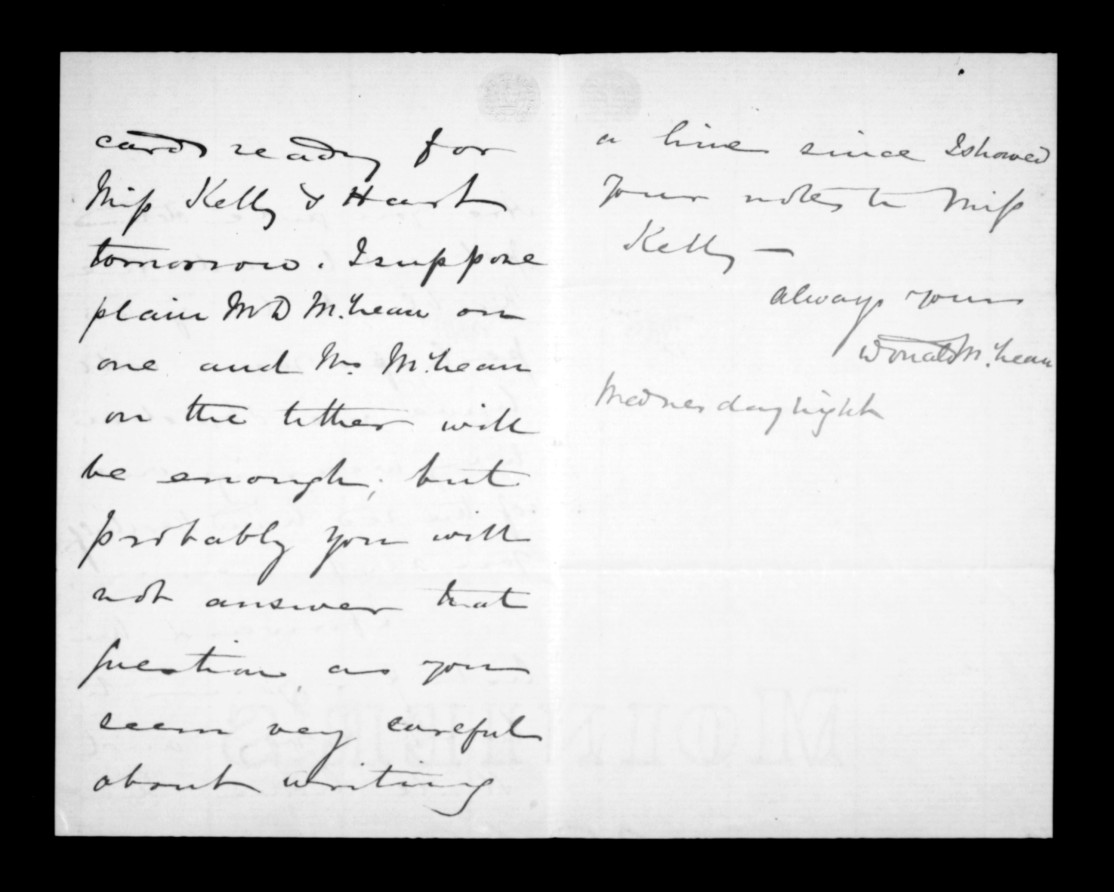 cards ready for
Miss Kelly & Hart
tomorrow. I suppose
plain Mr D McLean on
one and Mrs McLean
on the tither will
be enough; but
probably you will
not answer that
question as you
seem very careful
about writing
a line since I showed
your notes to Miss
Kelly —
always yours
Donald McLean
Wednesday night